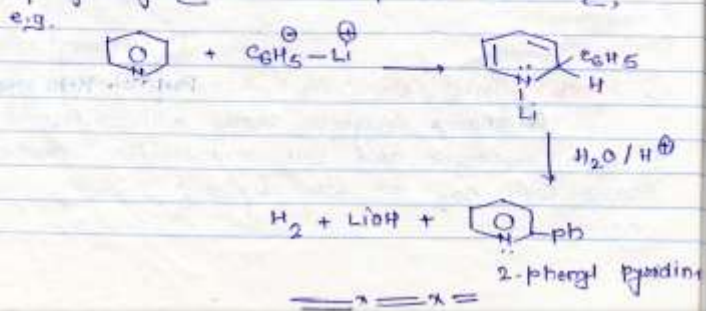 e.g.
N + C6H5⊖ — Li⊕ → N C6H5
H
Li
H2O / H⊕
H2 + LiOH + N ph
2-phenyl pyridin